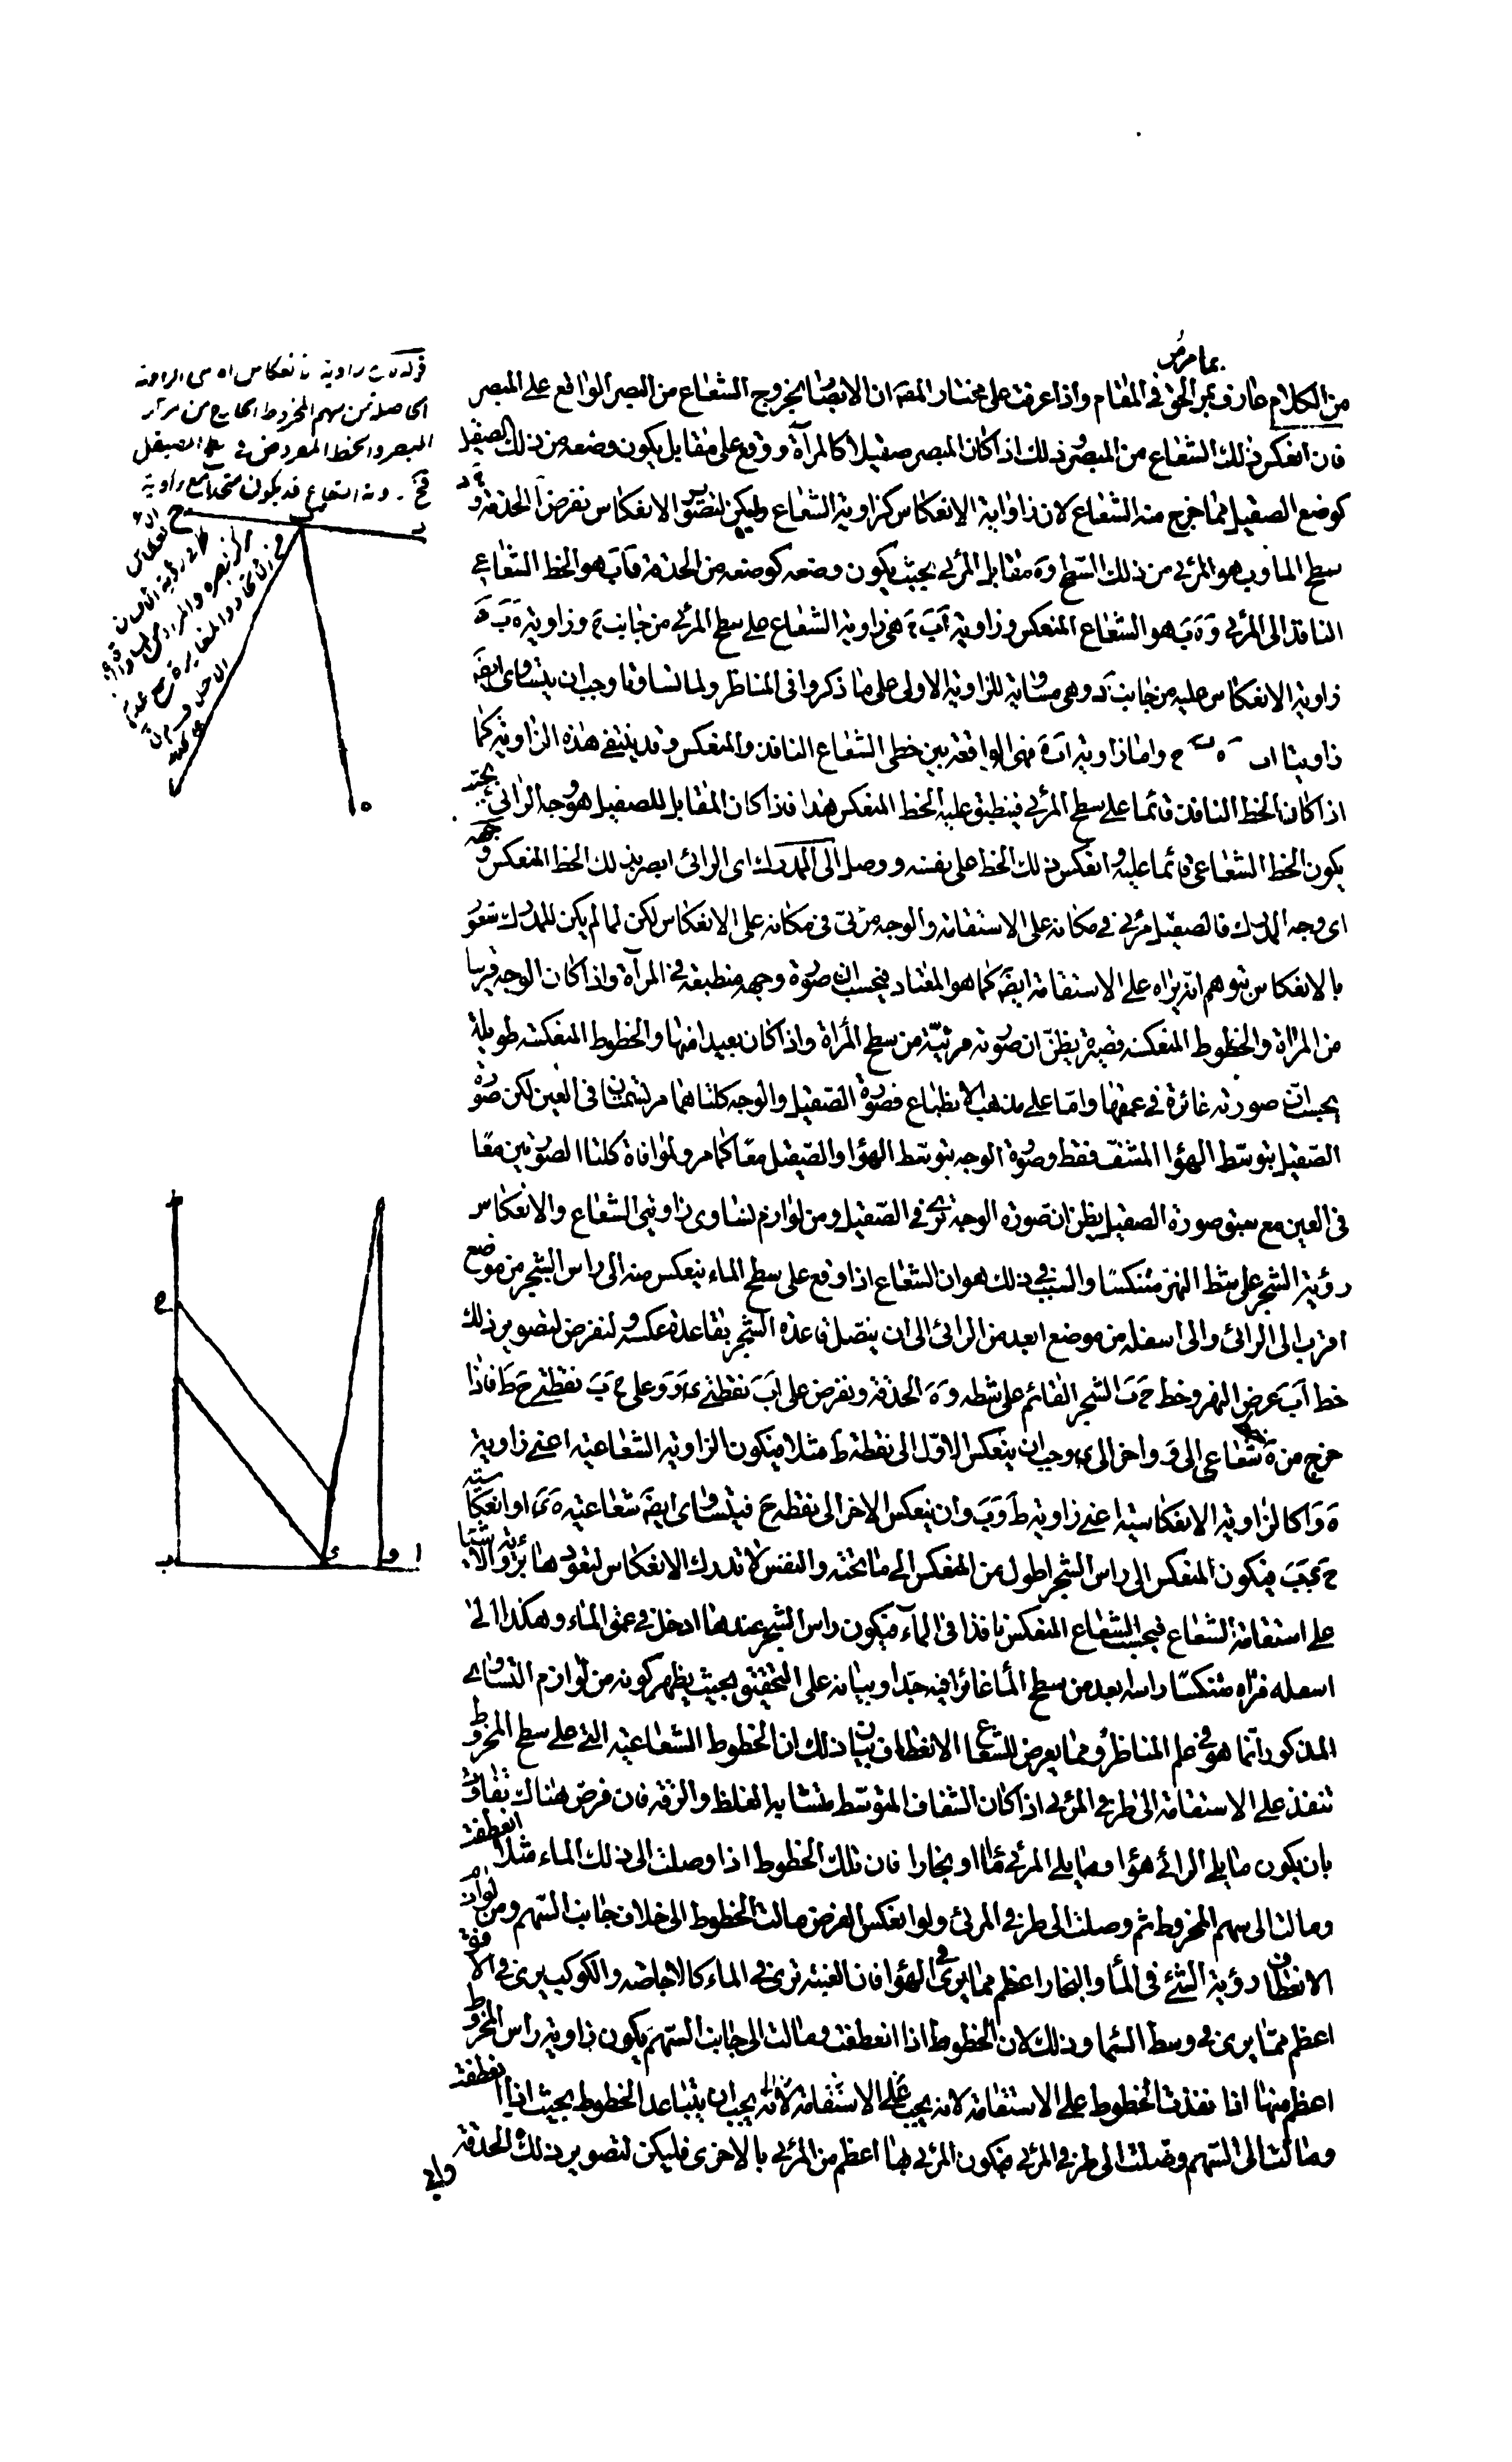 بما مر من
من الكلام عارف بمر الحق في المقام واذا عرفت على مختار المصه ان الابصار بخروج الشعاع من البصر الواقع على المبصر
فان انعكس ذلك الشعاع من المبصر وذلك اذا كان المبصر صقيلا كالمرآة ووقع على مقابل يكون وضعه من ذلك الصقيل
كوضع الصقيل مما خرج منه الشعاع لان زاوية الانعكاس كزاوية الشعاع وليكن لتصوير الانعكاس نفرض آ الحدقة و
سطح الماء وب هو المرئي من ذلك السطح وه مقابل المرئي بحيث يكون وضعه كوضعه من الحدقة فآب هو الخط الشعاعي
النافذ الى المرئي و ه ب هو الشعاع المنعكس وزاوية آب ج هي زاوية الشعاع على سطح المرئي من جانب ج وزاوية ه ب د
زاوية الانعكاس عليه من جانب د وهي مساوية للزاوية الاولى على ما ذكروا في المناظر ولما تساوتا وجب ان يتساوى ايضا
زاويتا اب ه ب ح واما زاوية اب ه فهى الواقعة بين خطى الشعاع النافذ والمنعكس وقد ينتفى هذه الزاوية كما
اذا كان الخط النافذ قائما على سطح المرئي فينطبق عليه الخط المنعكس هذا فاذا كان المقابل للصقيل هو وجه الرائي بحيث
يكون الخط الشعاعى قائما عليه وانعكس ذلك الخط على نفسه ووصل الى المدرك اى الرائى ابصر بذلك الخط المنعكس وجهه
اى وجه المدرك فالصقيل مرئي في مكانه على الاستقامة والوجه مرئي في مكانه على الانعكاس لكن لما لم يكن للمدرك شعور
بالانعكاس يتوهم انه يراه على الاستقامة ايضا كما هو المعتاد فيحسب ان صورة وجهه منطبعة في المرآة واذا كان الوجه قريبا
من المرآة والخطوط المنعكسة قصيرة يظن ان صورته مرئية من سطح المرأة واذا كان بعيدا منها والخطوط المنعكسة طويلة
يحسب ان صورته غائرة في عمقها واما على مذهب الانطباع فصورة الصقيل والوجه كلتاهما مرتسمتان في العين لكن صورة
الصقيل بتوسط الهواء المشف فقط وصورة الوجه بتوسط الهواء والصيقل معا كما مر ولموافاة كلتا الصورتين معا
في العين مع سبق صورة الصقيل يظن ان صورة الوجه ترى في الصقيل ومن لوازم تساوى زاويتى الشعاع والانعكاس
رؤية الشجر على شط النهر متنكسا والسبب في ذلك هو ان الشعاع اذا وقع على سطح الماء ينعكس منه الى راس الشجر من موضع
اقرب الى الرائى والى اسفله من موضع ابعد من الرائى الى ان يتصل قاعدة الشجر بقاعدة عكسه ولنفرض لتصوير ذلك
خط آب عرض النهر وخط ح ب الشجر القائم على شطه و ه الحدقة ونفرض على اب نقطتى ى و و على ح ب نقطتى ح ط فاذا
خرج من ه شعاعى الى و واخر الى ى وجب ان ينعكس الاول الى نقطة ط مثلا فيكون الزاوية الشعاعية اعنى زاوية
ه و ا كالزاوية الانعكاسية اعنى زاوية ط و ب وان ينعكس الاخر الى نقطه ح فيتساوى ايضا شعاعية ه ى ا وانعكاسية
ح ى ب فيكون المنعكس الى راس الشجر اطول من المنعكس الى ما تحته والنفس لا تدرك الانعكاس لتعودها برؤية الاشياء
على استقامة الشعاع فيحسب الشعاع المنعكس نافذا فى الماء فيكون راس الشجر عندها ادخل في عمق الماء وهكذا الى
اسفله فتراه متنكسا راسه ابعد من سطح الماء غائرا فيه جدا وبيانه على التحقيق بحيث يظهر كونه من لوازم التساوى
المذكور انما هو في علم المناظر ومما يعرض للشعاع الانعطاف بيان ذلك ان الخطوط الشعاعية التى على سطح المخروط
تنفذ على الاستقامة الى طرفى المرئي اذا كان الشفاف المتوسط متشابه الغلظ والرقة فان فرض هناك تفاوت
بان يكون ما يلى الرائى هواء وما يلى المرئي ماء او بخارا فان تلك الخطوط اذا وصلت الى ذلك الماء مثلا انعطفت
ومالت الى سهم المخروط ثم وصلت الى طرفى المرئى ولو انعكس الفرض مالت الخطوط الى خلاف جانب السهم ومن لوازم
الانعطاف رؤية الشئ فى الماء والبخار اعظم مما يرى في الهواء فان العنبة ترى في الماء كالاجاصة والكوكب يرى في الافق
اعظم مما يرى فى وسط السماء وذلك لان الخطوط اذا انعطفت ومالت الى جانب السهم يكون زاوية راس المخروط
اعظم منها اذا نفذت الخطوط على الاستقامة لانه يجب ان يتباعد الخطوط بحيث اذا انعطفت
ومالت الى السهم وصلت الى طرفى المرئي فيكون المرئي بها اعظم من المرئي بالاخرى فليكن لتصوير ذلك الحدقة
قوله زاوية الانعكاس اه هى الزاوية
الحاصلة من سهم المخروط الخارج من مركز
المبصر والخط المعروض في سطح الصيقل
ح
ب
د
ه
ح
ب
ى
و
ا